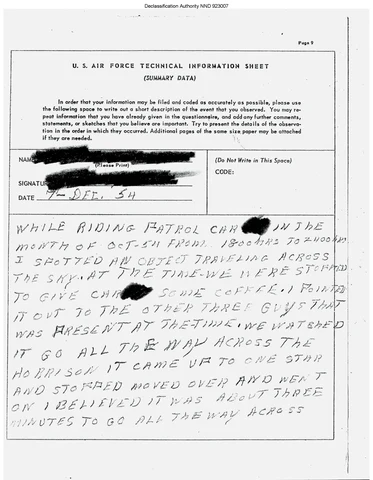 Declassification Authority NND 923007
Page 9
U. S. AIR FORCE TECHNICAL INFORMATION SHEET
(SUMMARY DATA)
In order that your information may be filed and coded as accurately as possible, please use
the following space to write out a short description of the event that you observed. You may re-
peat information that you have already given in the questionnaire, and add any further comments,
statements, or sketches that you believe are important. Try to present the details of the observa-
tion in the order in which they occurred. Additional pages of the same size paper may be attached
if they are needed.
NAME
(Please Print)
(Do Not Write in This Space)
CODE:
SIGNATU
DATE 7-DEC. 54
WHILE RIDING PATROL CAR IN THE
MONTH OF OCT-54 FROM. 1800HRS TO 2400HRS.
I SPOTTED AN OBJECT TRAVELING ACROSS
THE SKY. AT THE TIME-WE WERE STOPPED
TO GIVE CAR SOME COFFEE. I POINTED
IT OUT TO THE OTHER THREE GUYS THAT
WAS PRESENT AT THE TIME. WE WATSHED
IT GO ALL THE WAY ACROSS THE
HORRISON IT CAME UP TO ONE STAR
AND STOPPED MOVED OVER AND WENT
ON I BELIEVED IT WAS ABOUT THREE
MINUTES TO GO ALL THE WAY ACROSS